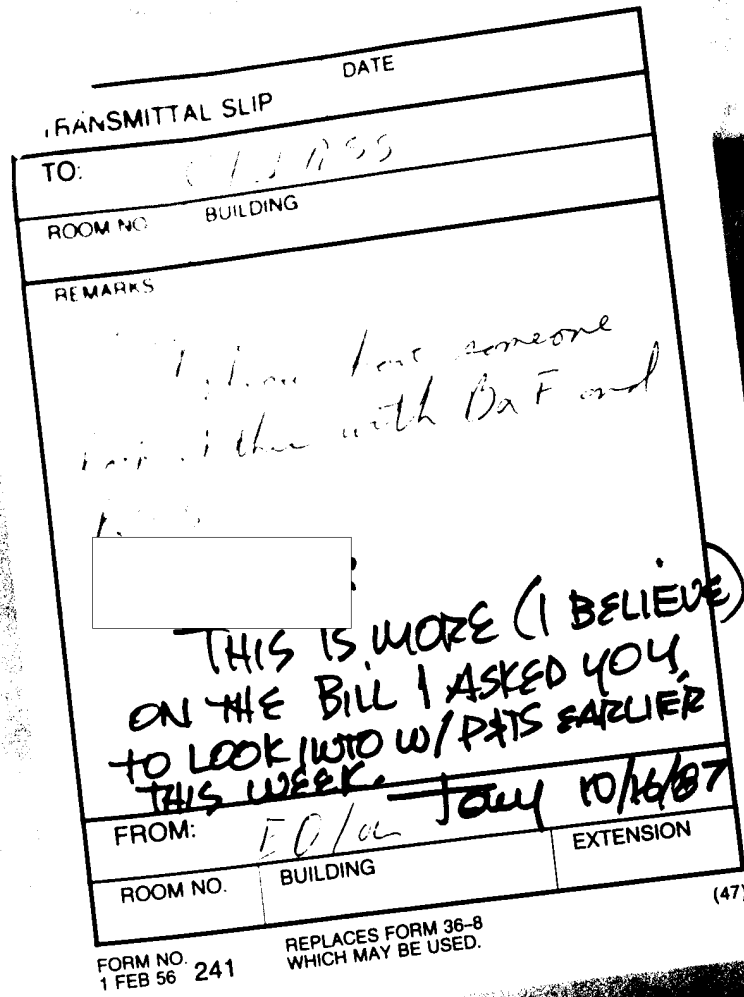 DATE
TRANSMITTAL SLIP
TO:
ROOM NO. BUILDING
REMARKS
someone
with B&F and
THIS IS MORE (I BELIEVE)
ON THE BILL I ASKED YOU
TO LOOK INTO W/ P&TS EARLIER
THIS WEEK. Tony 10/16/87
FROM:
EXTENSION
ROOM NO. BUILDING
(47)
FORM NO. 241 REPLACES FORM 36-8
1 FEB 56 WHICH MAY BE USED.